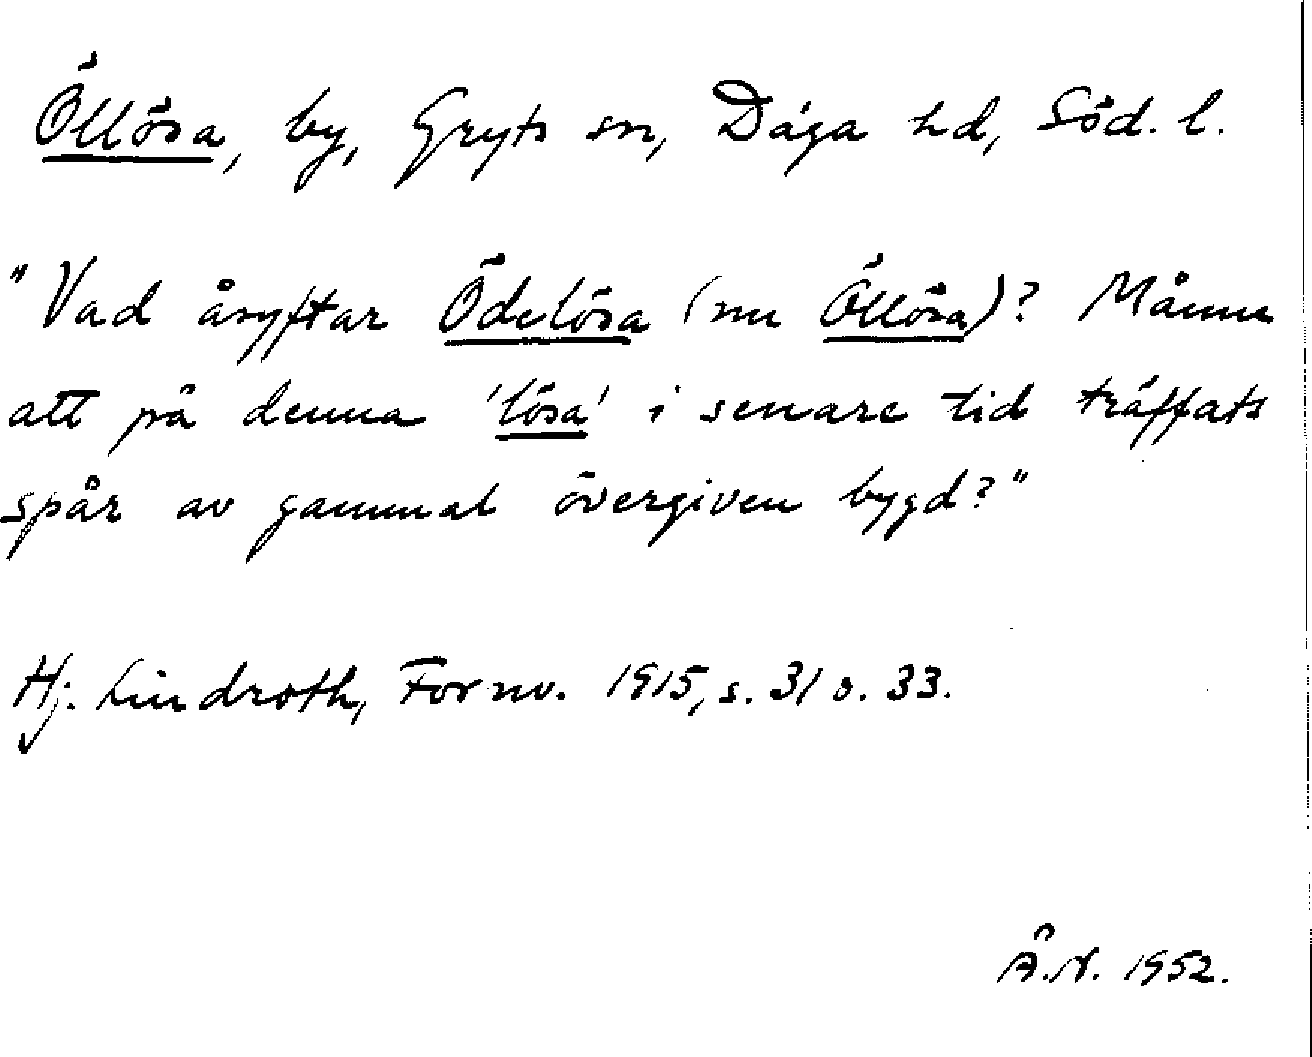 Öllösa, by, Gryts sn, Daga hd, Söd. l.
"Vad åsyftar Ödelösa (nu Öllösa)? Månne
att på denna 'lösa' i senare tid träffats
spår av gammal övergiven bygd?"
Hj. Lindroth, Fornv. 1915, s. 31 o. 33.
Å.N. 1952.